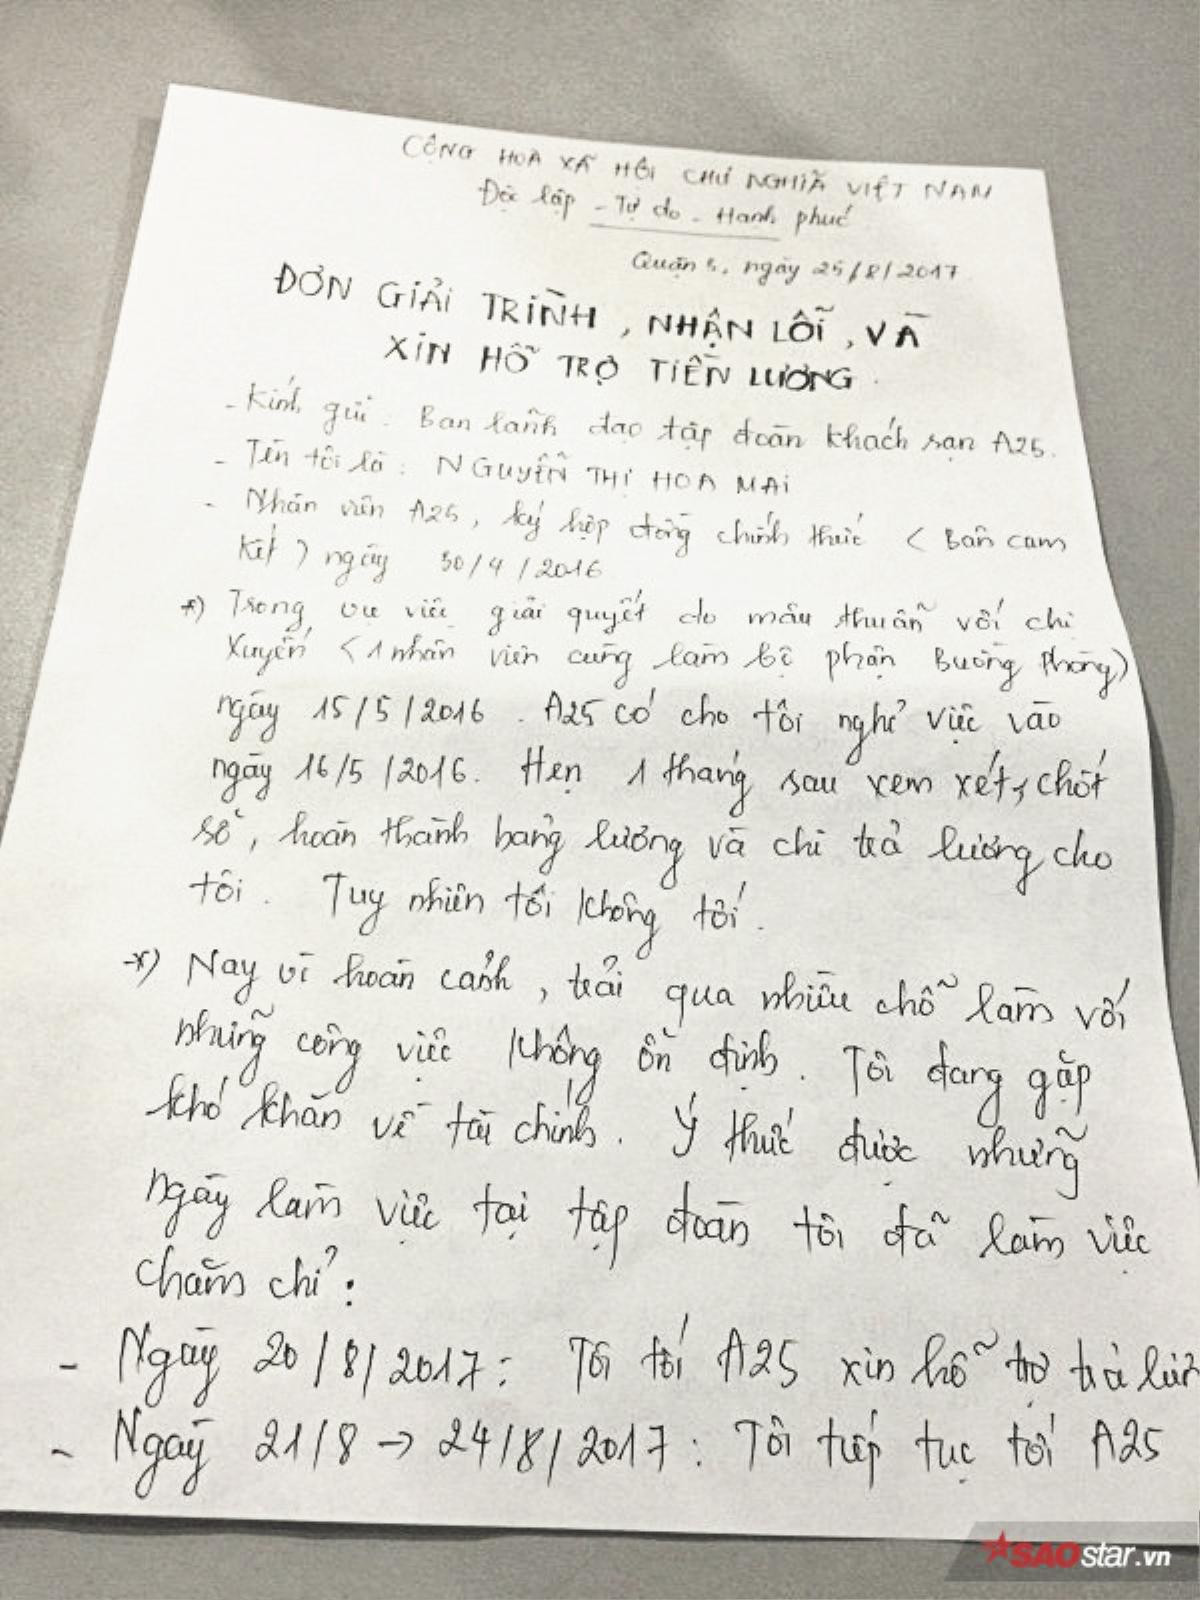 CỘNG HOÀ XÃ HỘI CHỦ NGHĨA VIỆT NAM
Độc lập - Tự do - Hạnh phúc
Quận 5, ngày 25/8/2017
ĐƠN GIẢI TRÌNH, NHẬN LỖI, VÀ
XIN HỖ TRỢ TIỀN LƯƠNG.
- Kính gửi: Ban lãnh đạo tập đoàn khách sạn A25.
- Tên tôi là: NGUYỄN THỊ HOA MAI
- Nhân viên A25, ký hợp đồng chính thức (Bản cam
kết) ngày 30/4/2016
*) Trong vụ việc giải quyết do mâu thuẫn với chị
Xuyến (1 nhân viên cùng làm bộ phận Buồng Phòng)
ngày 15/5/2016. A25 có cho tôi nghỉ việc vào
ngày 16/5/2016. Hẹn 1 tháng sau xem xét, chốt
sổ, hoàn thành bảng lương và chi trả lương cho
tôi. Tuy nhiên tôi không tới.
*) Nay vì hoàn cảnh, trải qua nhiều chỗ làm với
những công việc không ổn định. Tôi đang gặp
khó khăn về tài chính. Ý thức được những
ngày làm việc tại tập đoàn tôi đã làm việc
chăm chỉ:
- Ngày 20/8/2017: Tôi tới A25 xin hỗ trợ trả lươ
- Ngày 21/8 → 24/8/2017: Tôi tiếp tục tới A25
SAOstar.vn